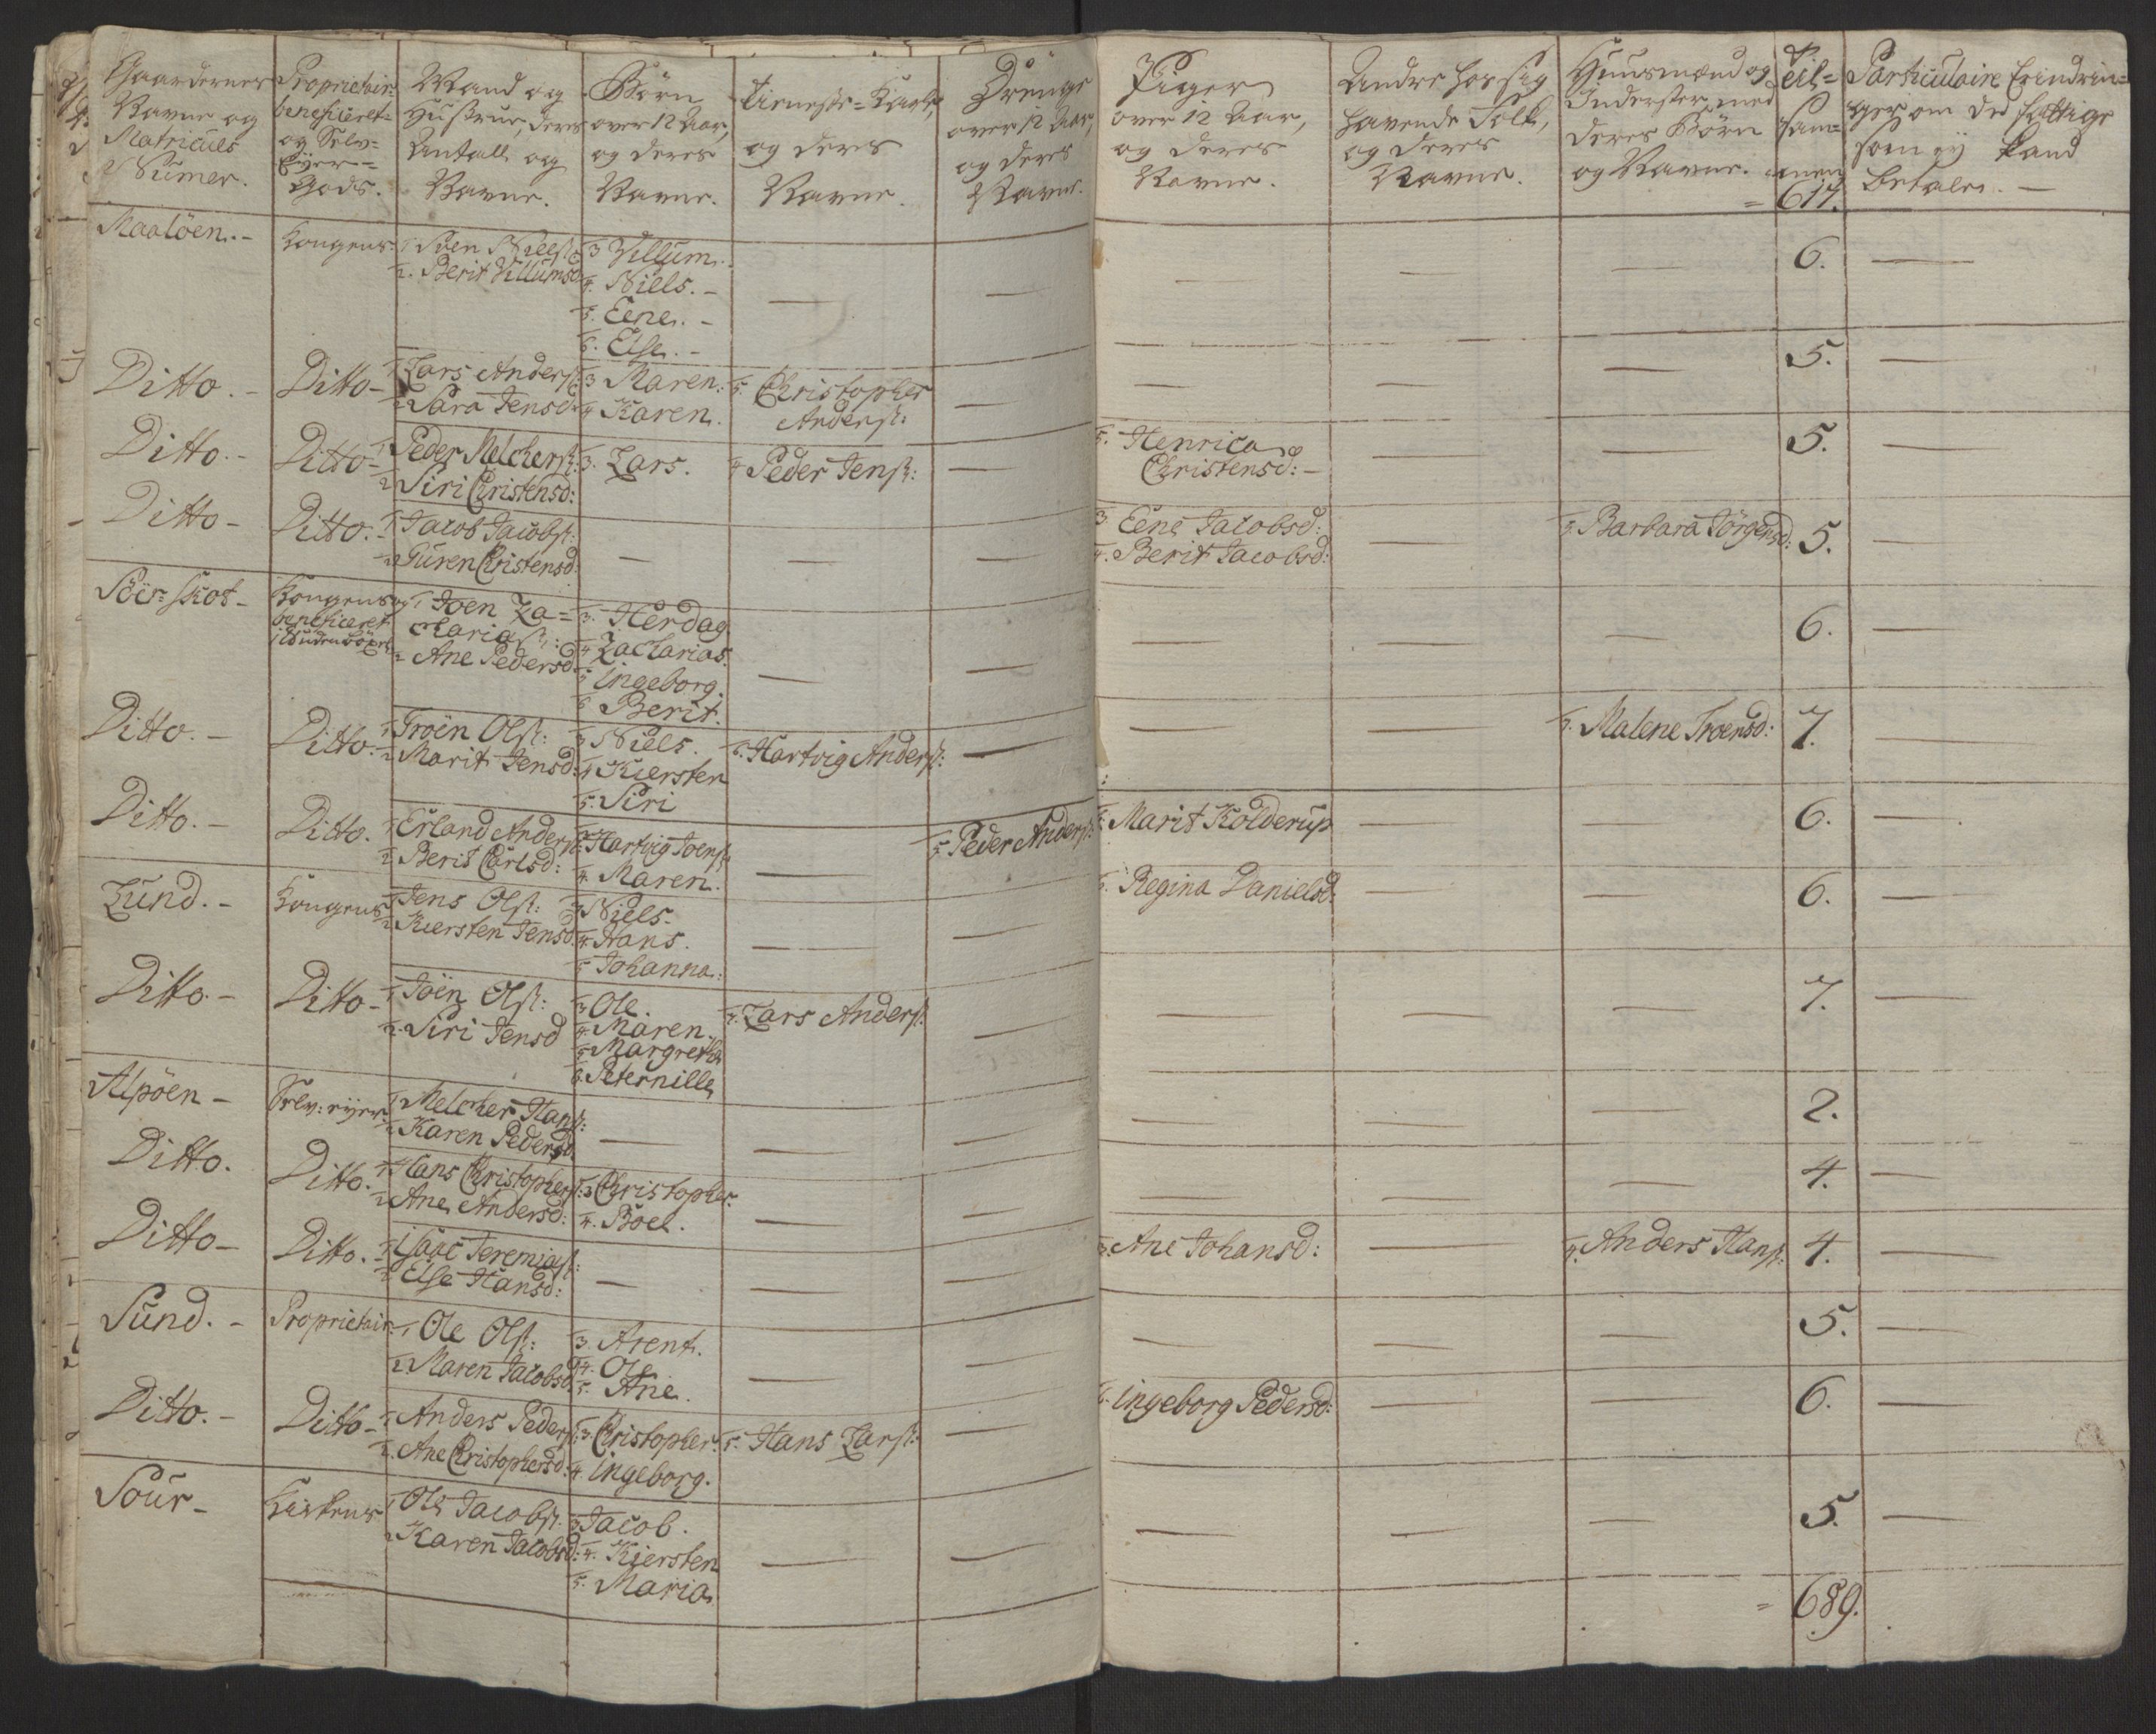 Gaardernes
Navne og
Matriculs
Numer.
Proprietair
beneficeret=
og Selv=
Eyer=
Gods.
Mand og
Hustrue, deres
Antall og
Navne.
Børn
over 12 Aar,
og deres
Navne.
Tieneste=Karle,
og deres
Navne.
Drenge
over 12 Aar,
og deres
Navne.
Piger
over 12 Aar,
og deres
Navne.
Andre hos sig
havende Folk,
og deres
Navne.
Huusmænd og
Inderster, med
deres Børn
og Navne.
Til=
sam=
men
= 617.
Particulaire Erindrin=
ger om de fattige
som ey kand
betale. —
Maaløen. -
Kongens
1 Sven Nielss:
2. Berit Villumsd
3 Villum.
4. Niels. -
5. Eene. -
6. Else. -
6.
Ditto. -
Ditto -
1 Lars Anderss:
2 Sara Jensd:
3 Maren.
4 Karen.
5. Christopher
Anderss:
5.
Ditto. -
Ditto -
1 Peder Melchers:
2 Siri Christensd:
3. Lars.
4 Peder Jenss:
5. Henrica
Christensd: -
5.
Ditto -
Ditto. -
1 Jacob Jacobs:
2 Guren Christensd:
3 Eene Jacobsd:
4. Berit Jacobsd:
5. Barbara Jörgensd:
5.
Söer=skot -
Kongens og
beneficeret
1 Joen Za=
charias:
2 Ane Pedersd
3. Herdag
4 Zacharias.
5 Ingeborg.
6 Berit.
6.
Ditto. -
Ditto. -
1 Troën Olss:
2 Marit Jensd:
3 Niels.
4 Kiersten
5. Siri
6. Hartvig Anderss:
7. Malene Troensd:
7.
Ditto. -
Ditto.
1 Erland Anderss:
2 Berit Carlsd:
3 Hartvig Joenss
4. Maren.
5. Peder Anderss:
6. Marit Kolderup
6.
Lund. -
Kongens
1 Jens Olss:
2 Kiersten Jensd.
3 Niels.
4. Hans.
5 Johanna.
6. Regina Danielsd:
6.
Ditto. -
Ditto -
1 Joën Olss:
2. Siri Jensd
3 Ole.
4 Maren.
5 Margrethe
6. Peternille
7. Lars Anderss:
7.
Alpöen -
Selv=eyer
1 Melcher Hanss:
2 Karen Pedersd.
2.
Ditto.
Ditto.
1 Hans Christophers:
2 Ane Andersd:
3 Christopher.
4. Boel.
4.
Ditto -
Ditto. -
1 Isaac Jeremiass:
2 Else Hansd:
3. Ane Johansd:
4. Anders Hanss:
4.
Sund. -
Proprietair
1 Ole Olss:
2. Maren Jacobsd
3. Arent.
4. Ole
5. Ane.
5.
Ditto. -
Ditto -
1 Anders Peders:
2. Ane Christophersd:
3. Christopher.
4 Ingeborg.
5. Hans Larss:
6. Ingeborg Pedersd:
6.
Sour -
Kirkens
1 Ole Jacobs:
2 Karen Jacobsd:
3 Jacob.
4. Kiersten
5. Maria
5.
= 689.